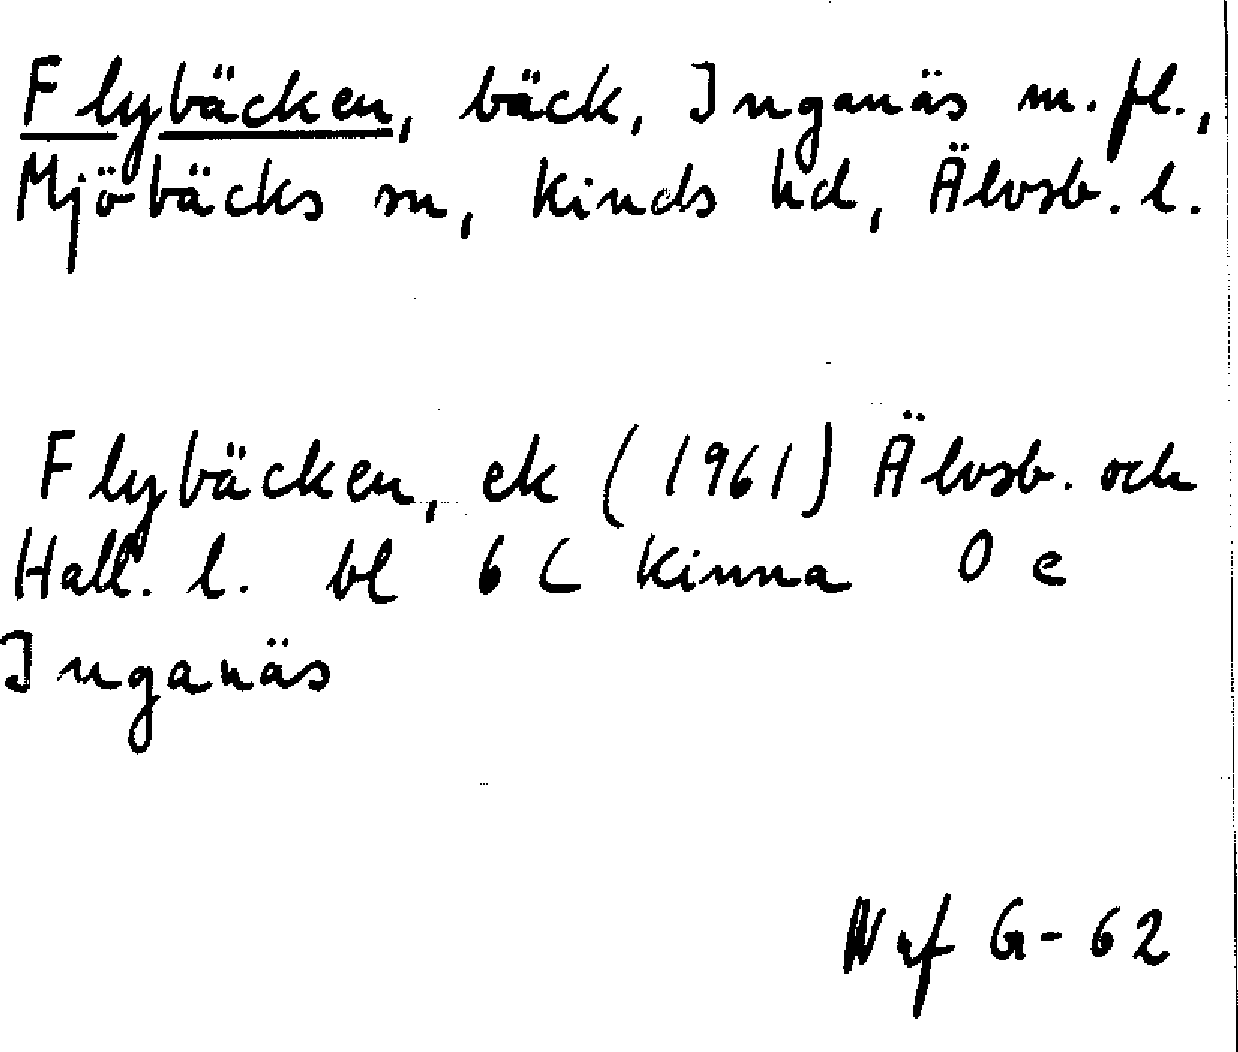 Flybäcken, bäck, Inganäs m.fl.,
Mjöbäcks sn, Kinds hd, Älvsb. l.
Flybäcken, ek (1961) Älvsb. och
Hall. l. bl 6 C Kinna 0 e
Inganäs
G-62